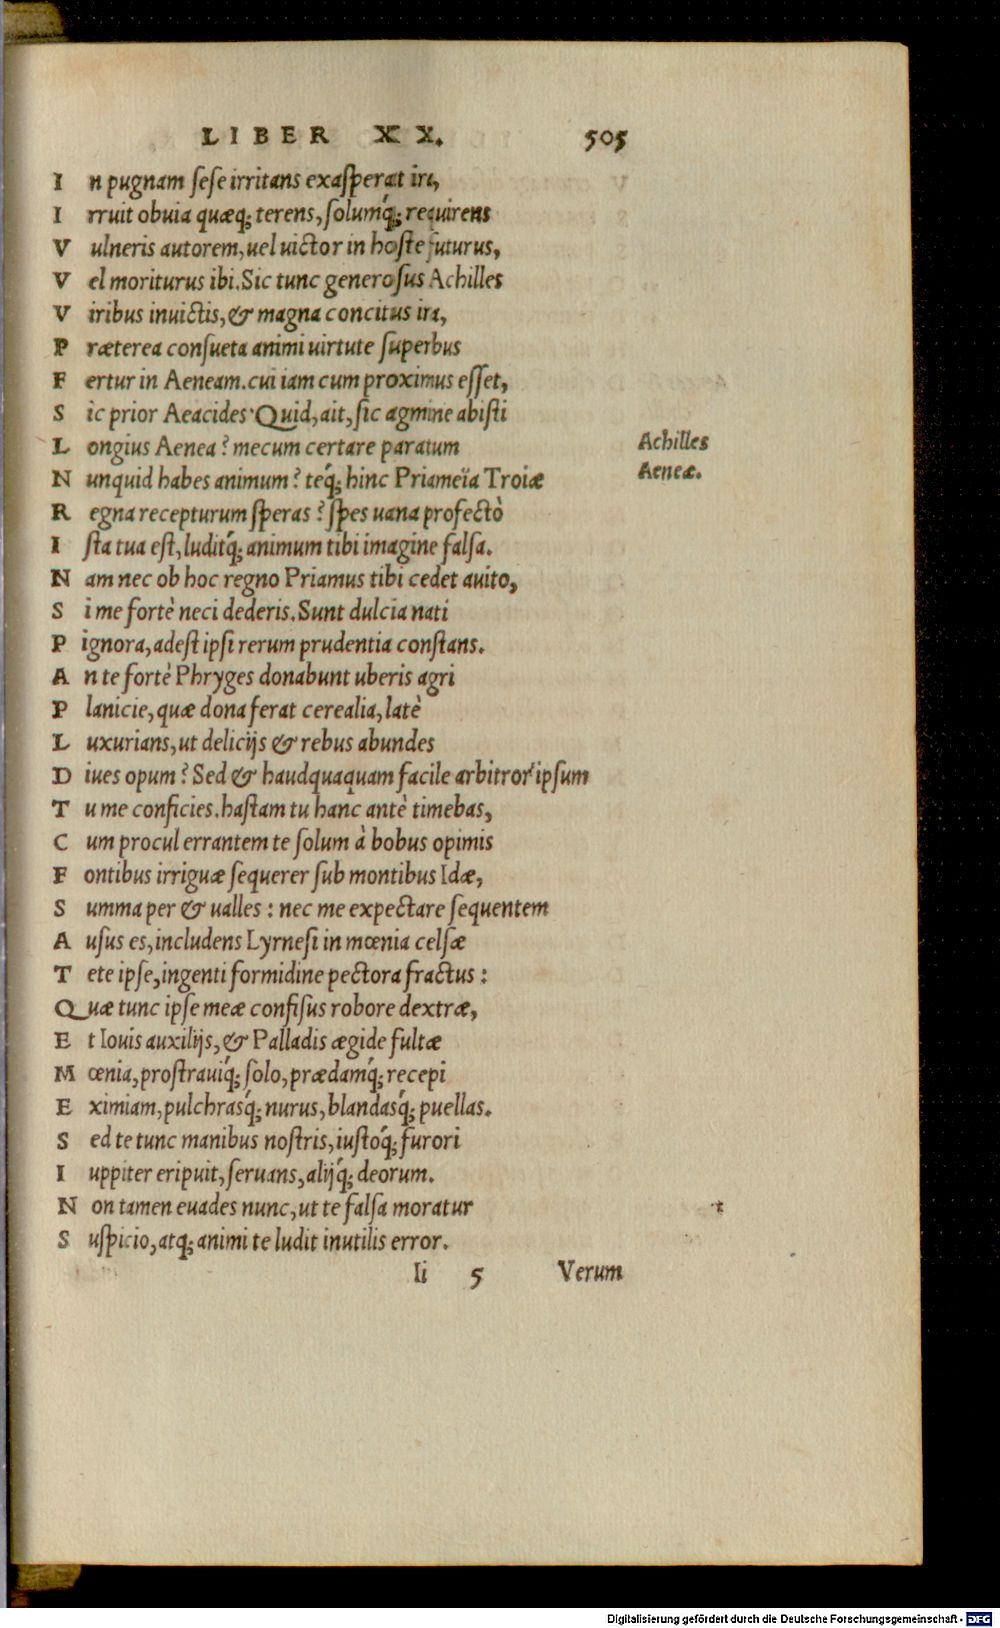 LIBER XX. 505
In pugnam ſeſe irritans exaſperat ira,
Irruit obuia quæq; terens, ſolumq́; requirens
Vulneris autorem, uel uictor in hoſte futurus,
Vel moriturus ibi. Sic tunc generoſus Achilles
Viribus inuictis, & magna concitus ira,
Præterea conſueta animi uirtute ſuperbus
Fertur in Aeneam. cui iam cum proximus eſſet,
Sic prior Aeacides· Quid, ait, ſic agmine abiſti
Longius Aenea? mecum certare paratum
Achilles
Nunquid habes animum? teq́; hinc Priameïa Troiæ
Aeneæ.
Regna recepturum ſperas? ſpes uana profectò
Iſta tua eſt, luditq́; animum tibi imagine falſa.
Nam nec ob hoc regno Priamus tibi cedet auito,
Si me fortè neci dederis. Sunt dulcia nati
Pignora, adeſt ipſi rerum prudentia conſtans.
An te fortè Phryges donabunt uberis agri
Planicie, quæ dona ferat cerealia, latè
Luxurians, ut delicijs & rebus abundes
Diues opum? Sed & haudquaquam facile arbitror ipſum
Tu me conficies. haſtam tu hanc antè timebas,
Cum procul errantem te ſolum à bobus opimis
Fontibus irriguæ ſequerer ſub montibus Idæ,
Summa per & ualles: nec me expectare ſequentem
Auſus es, includens Lyrneſi in mœnia celſæ
Tete ipſe, ingenti formidine pectora fractus:
Quæ tunc ipſe meæ confiſus robore dextræ,
Et Iouis auxilijs, & Palladis ægide fultæ
Mœnia, proſtrauiq́; ſolo, prædamq́; recepi
Eximiam, pulchrasq́; nurus, blandasq́; puellas.
Sed te tunc manibus noſtris, iuſtoq́; furori
Iuppiter eripuit, ſeruans, alijq́; deorum.
Non tamen euades nunc, ut te falſa moratur
Suſpicio, atq; animi te ludit inutilis error.
Ii 5 Verum
Digitalisierung gefördert durch die Deutsche Forschungsgemeinschaft - DFG